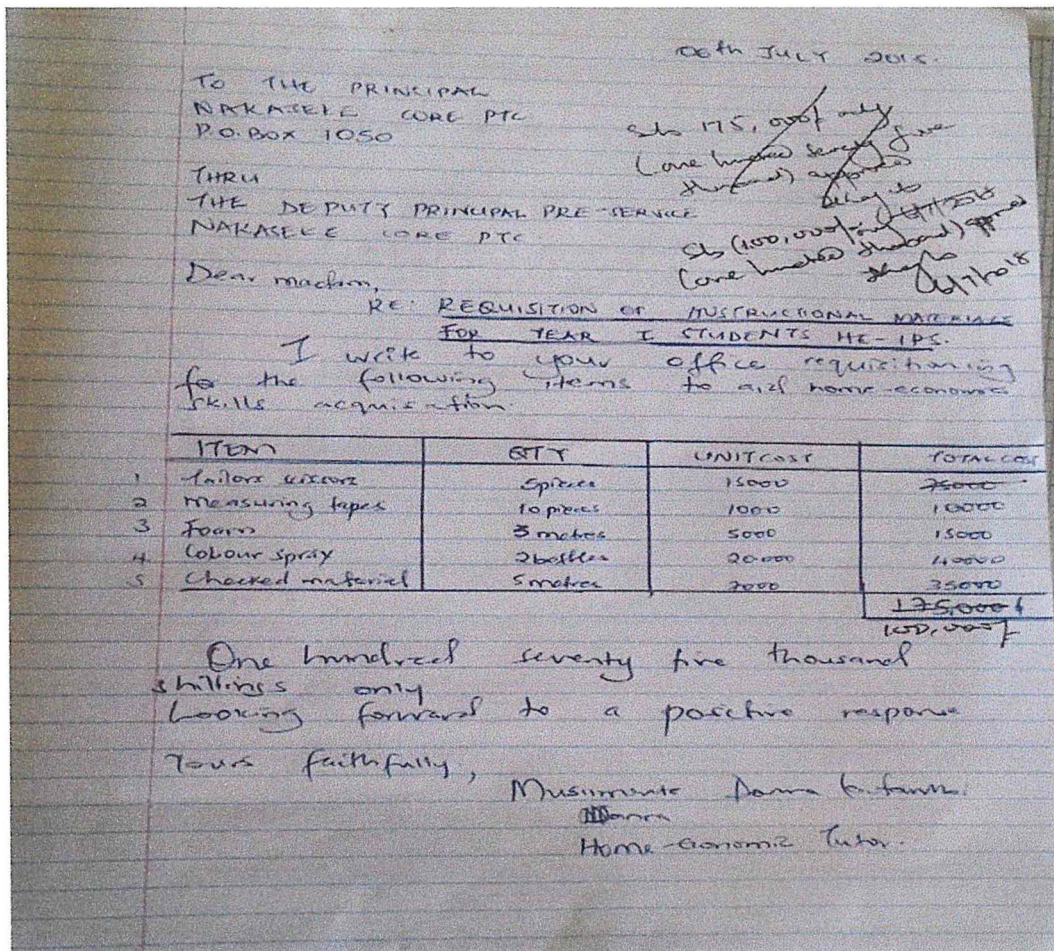 06th JULY 2018.
TO THE PRINCIPAL
NAKASEKE CORE PTC
P.O.BOX 1050
Shs 175,000/ only
(one hundred seventy five
thousand) approved
Okay to
THRU
THE DEPUTY PRINCIPAL PRE-SERVICE
NAKASEKE CORE PTC
Shs (100,000/=
(one hundred thousand)
6/7/2018
Dear madam,
RE: REQUISITION OF INSTRUCTIONAL MATERIALS
FOR YEAR I STUDENTS HE-IPS.
I write to your office requisitioning
for the following items to aid home economics
skills acquisition.
ITEM QTY UNIT COST TOTAL COST
1 Tailors scissors 5pieces 15000 75000
2 Measuring tapes 10 pieces 1000 10000
3 Foam 3 metres 5000 15000
4 Colour spray 2bottles 20000 40000
5 Checked material 5 metres 7000 35000
175,000/
100,000/
One hundred seventy five thousand
shillings only
Looking forward to a positive response
Yours faithfully,
Musimenta
Home-Economic Tutor.